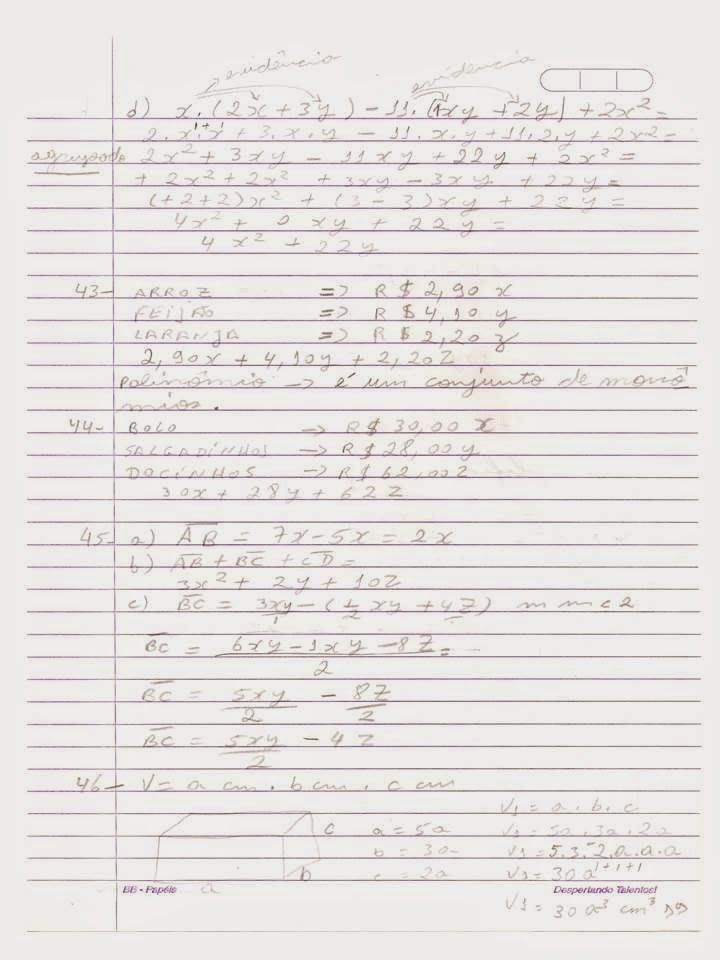 evidência evidencia
d) x.(2x + 3y) - 11.(1xy - 2y) + 2x² =
2.x¹⁺¹x + 3.x.y - 11.x.y + 11.2.y + 2x² =
2x² + 3xy - 11xy + 22y + 2x² =
+ 2x² + 2x² + 3xy - 3xy + 22y =
(+2+2)x² + (3-3)xy + 22y =
4x² + 0 xy + 22y =
4x² + 22y
43- ARROZ => R$ 2,90 x
FEIJÃO => R$ 4,10 y
LARANJA => R$ 2,20 z
2,90x + 4,10y + 2,20z
Polinômio -> é um conjunto de monô
mios.
44- BOLO -> R$ 30,00 x
SALGADINHOS -> R$ 28,00y
DOCINHOS -> R$ 62,00z
30x + 28y + 62z
45- a) AB = 7x - 5x = 2x
b) AB + BC + CD =
3x² + 2y + 10z
c) BC = 3xy/1 - (1/2 xy + 4z) m m c 2
BC = 6xy - 1xy - 8z / 2 =
BC = 5xy/2 - 8z/2
BC = 5xy/2 - 4z
46- V = a cm . b cm . c cm
V1 = a . b . c
c a = 5a V1 = 5a . 3a . 2a
b = 3a V1 = 5.3.2.a.a.a
b c = 2a V1 = 30a¹⁺¹⁺¹
a
BB - Papéis Despertando Talentos!
V1 = 30a³ cm³